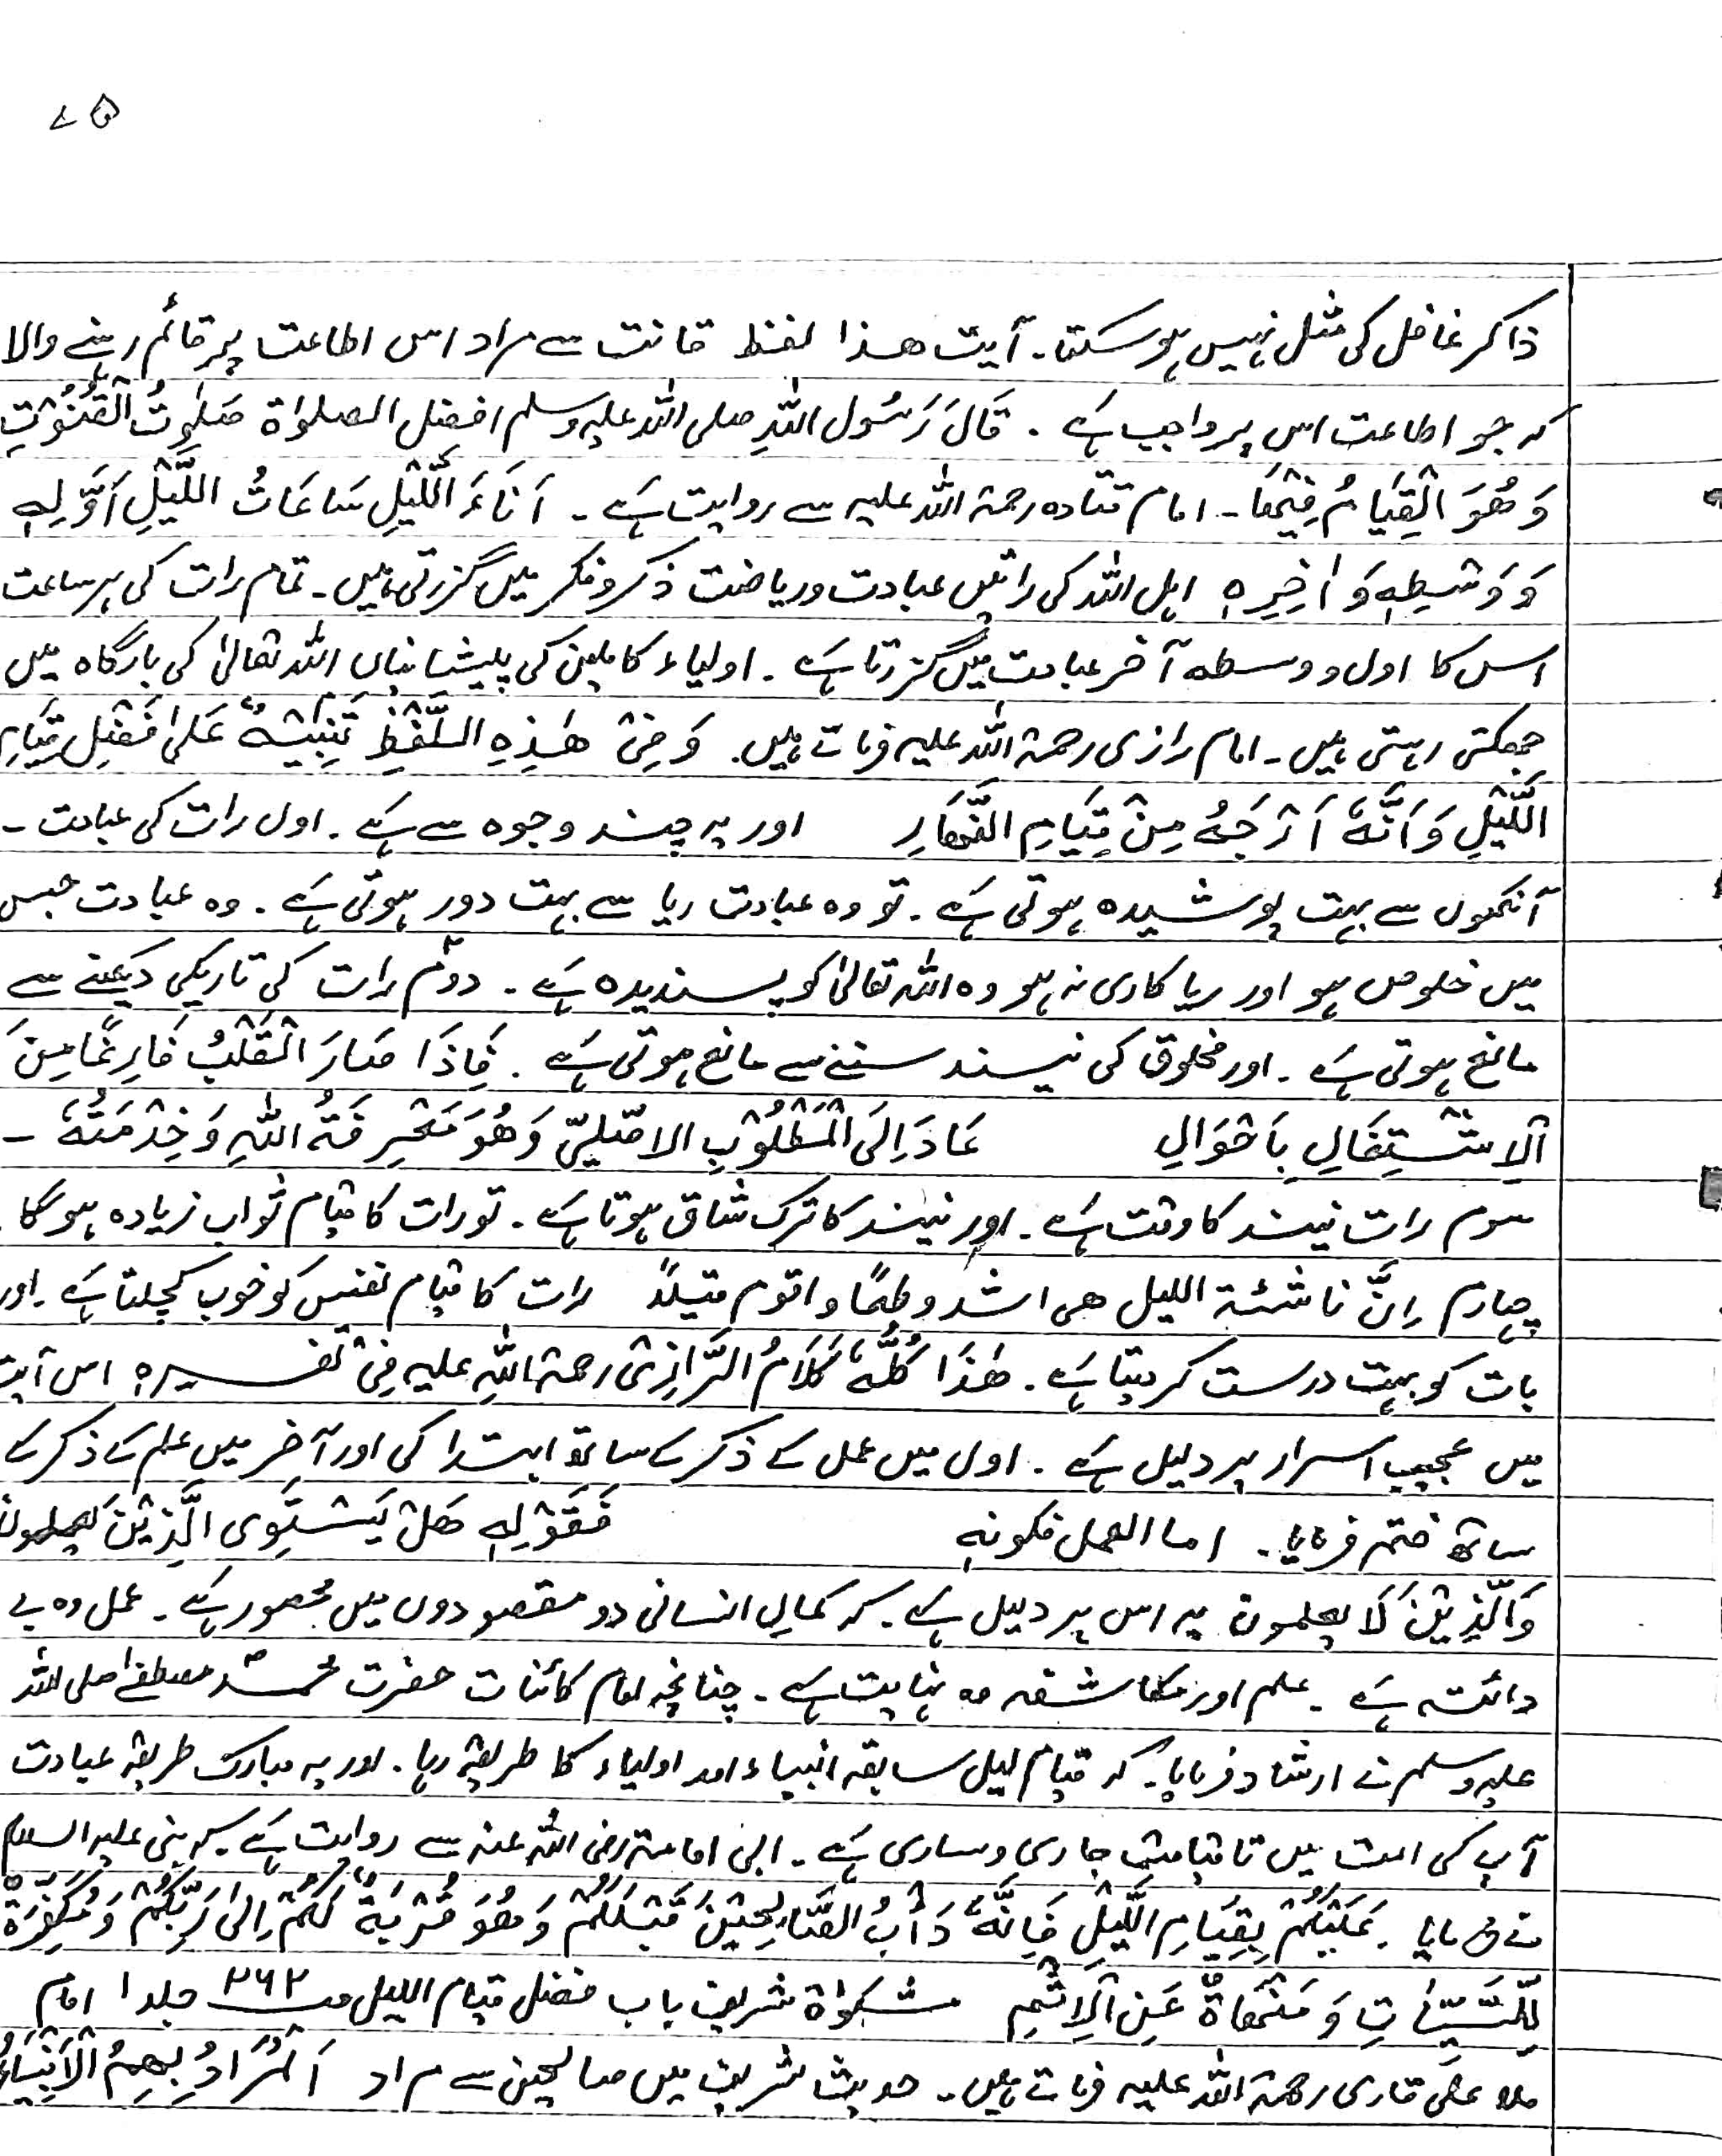 ۵۷
ذاکر غافل کی مثل نہیں ہو سکتا۔ آیت ھذا لفظ قانت سے مراد اس اطاعت پر قائم رہنے والا
کہ جو اطاعت اس پر واجب ہے۔ قَالَ رَسُول اللہِ صلی اللہ علیہ وسلم افضل الصلوٰۃ صَلٰوتُ الْقُنُوْتِ
وَھُوَ الْقِیَامُ فِیْھَا۔ امام قتادہ رحمۃ اللہ علیہ سے روایت ہے۔ اَنَاءَ اللَّیْلِ سَاعَاتُ اللَّیْلِ اَوَّلِہٖ
وَ وَسْطِہٖ وَ اٰخِرِہٖ اہل اللہ کی راتیں عبادت وریاضت ذکر وفکر میں گزرتی ہیں۔ تمام رات کی ہر ساعت
اس کا اول و وسطہ آخر عبادت میں گزرتا ہے۔ اولیاء کاملین کی پیشانیاں اللہ تعالیٰ کی بارگاہ میں
جھکتی رہتی ہیں۔ امام رازی رحمۃ اللہ علیہ فرماتے ہیں۔ وَفِیْ ھٰذِہِ اللَّفْظِ تَنْبِیْہٌ عَلٰی فَضْلِ قِیَامِ
اللَّیْلِ وَاَنَّہٗ اَرْجَحُ مِنْ قِیَامِ النَّھَارِ اور یہ چند وجوہ سے ہے۔ اول رات کی عبادت۔
آنکھوں سے بہت پوشیدہ ہوتی ہے۔ تو وہ عبادت ریا سے بہت دور ہوتی ہے۔ وہ عبادت جس
میں خلوص ہو اور ریاکاری نہ ہو وہ اللہ تعالیٰ کو پسندیدہ ہے۔ دوم رات کی تاریکی دیکھنے سے
مانع ہوتی ہے۔ اور مخلوق کی نیند سننے سے مانع ہوتی ہے۔ فَاِذَا صَارَ الْقَلْبُ فَارِغًا مِنَ
الْاِشْتِغَالِ بِاَحْوَالِ عَادَ اِلَی الْمَطْلُوْبِ الاصْلِیِّ وَھُوَ مَعْرِفَۃُ اللہِ وَخِدْمَتُہٗ۔
سوم رات نیند کا وقت ہے۔ اور نیند کا ترک شاق ہوتا ہے۔ تو رات کا قیام ثواب زیادہ ہو گا۔
چہارم اِنَّ ناشئۃ اللیل ھی اشد وطئًا واقوم قیلاً رات کا قیام نفس کو خوب کچلتا ہے۔ اور
بات کو بہت درست کر دیتا ہے۔ ھٰذَا کُلُّہٗ کَلَامُ الرَّازِیْ رحمۃ اللہِ علیہ فِیْ تفسیرہٖ اس آیت
میں عجیب اسرار پر دلیل ہے۔ اول میں عمل کے ذکر کے ساتھ ابتدا کی اور آخر میں علم کے ذکر کے
ساتھ ختم فرمایا۔ اما العمل فکونہٖ فَقَوْلِہٖ ھَلْ یَسْتَوِی الَّذِیْنَ یعلمون
وَالَّذِیْنَ لَا یعلمون یہ اس پر دلیل ہے۔ کہ کمالِ انسانی دو مقصودوں میں محصور ہے۔ عمل وہ ہے
دائمہ ہے۔ علم اور مکاشفہ وہ نہایت ہے۔ چنانچہ امام کائنات حضرت محمد مصطفےٰ صلی اللہ
علیہ وسلم نے ارشاد فرمایا۔ کہ قیام لیل سابقہ انبیاء اور اولیاء کا طریقہ رہا۔ اور یہ مبارک طریقہ عبادت
آپ کی امت میں تا قیامت جاری وساری ہے۔ ابی امامۃ رضی اللہ عنہ سے روایت ہے۔ کہ نبی علیہ السلام
نے فرمایا۔ عَلَیْکُمْ بِقِیَامِ اللَّیْلِ فَاِنَّہٗ دَأْبُ الصَّالِحِیْنَ قَبْلَکُمْ وَھُوَ قُرْبَۃٌ لَکُمْ اِلٰی رَبِّکُمْ وَمُکَفِّرَۃٌ
لِلسَّیِّئٰاتِ وَمَنْھَاۃٌ عَنِ الْاِثْمِ مشکوٰۃ شریف باب فضل قیام اللیل ص ۲۶۲ جلد ۱ امام
ملا علی قاری رحمۃ اللہ علیہ فرماتے ہیں۔ حدیث شریف میں صالحین سے مراد اَلْمُرَادُ بِھِمُ الْاَنْبِیَاءُ